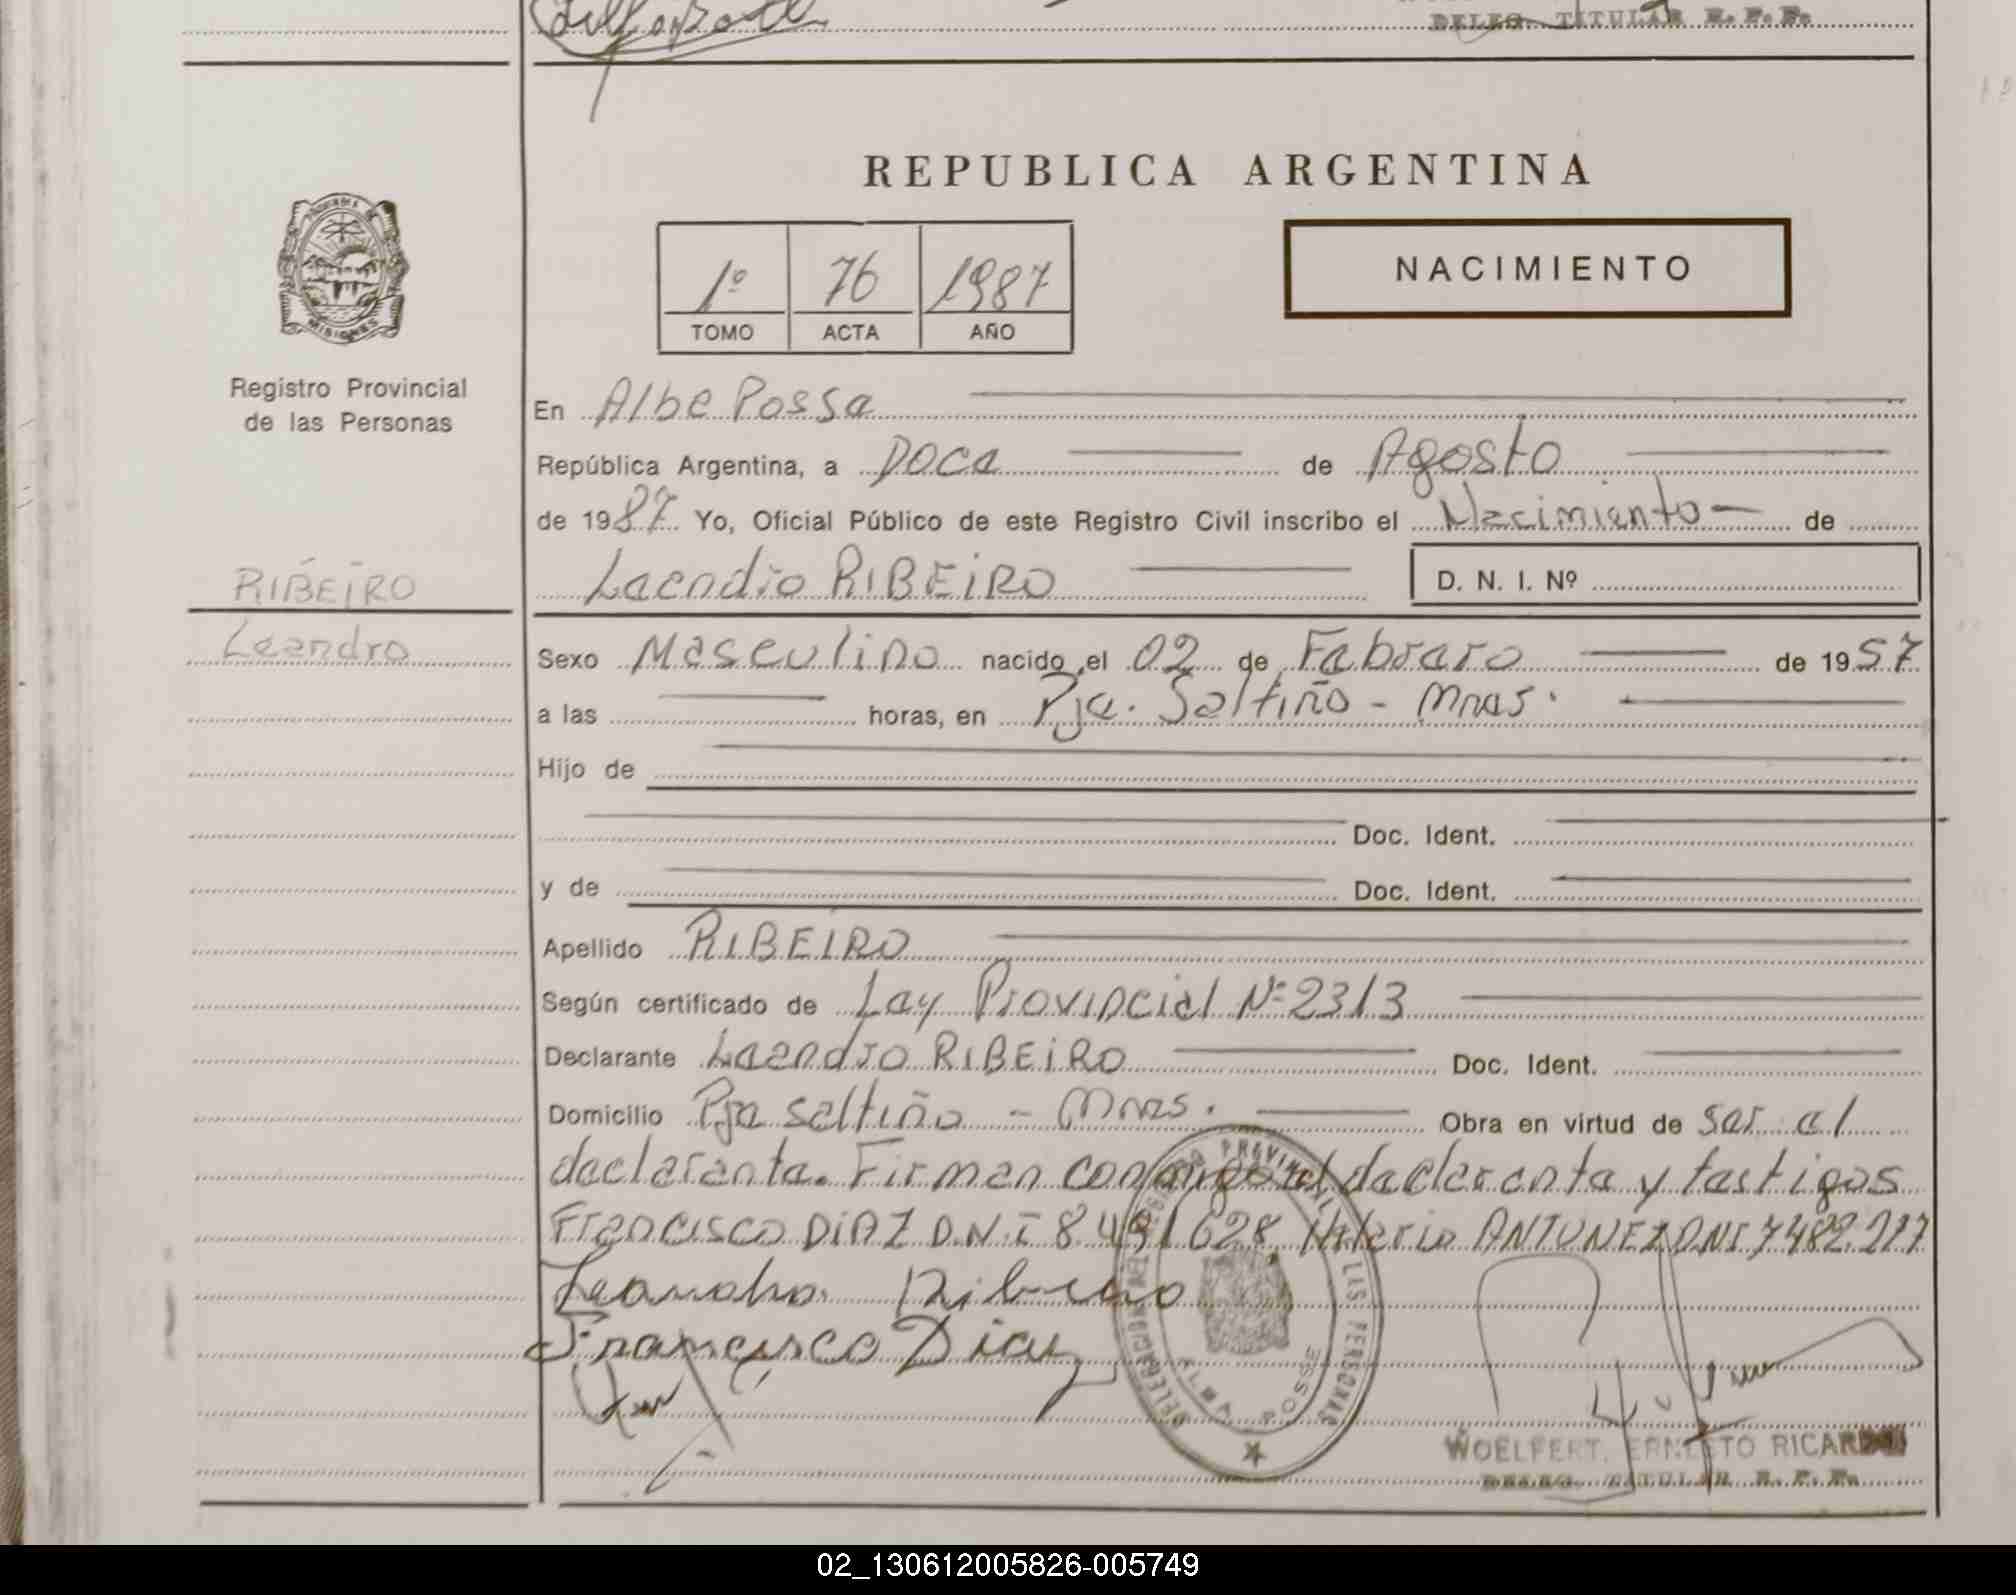 DELEG. TITULAR R. P. P.
REPUBLICA ARGENTINA
PROVINCIA DE
MISIONES
1º 76 1987
TOMO ACTA AÑO
NACIMIENTO
Registro Provincial
de las Personas
En Albe Possa
República Argentina, a Doca de Agosto
de 1987 Yo, Oficial Público de este Registro Civil inscribo el Nacimiento de
RIBEIRO
Leandro
Laendro RIBEIRO D. N. I. Nº
Sexo Masculino nacido el 02 de Fabraro de 1957
a las horas, en Pja. Saltiño - Mnas.
Hijo de
Doc. Ident.
y de Doc. Ident.
Apellido RIBEIRO
Según certificado de Lay Provincial Nº 2313
Declarante Laendro RIBEIRO Doc. Ident.
Domicilio Pja Saltiño - Mnas. Obra en virtud de sar al
daclaranta. Firman conmigo al daclaranta y tastigos
Francisco DIAZ D.N.I 8.491.628 Hilario ANTUNEZ DNI 7.482.217
Leandro Ribeiro
Francisco Diaz
DELEGACION REGISTRO PROVINCIAL DE LAS PERSONAS
ALBA POSSE
WOELFERT, ERNESTO RICARDO
DELEG. TITULAR R. P. P.
02_130612005826-005749